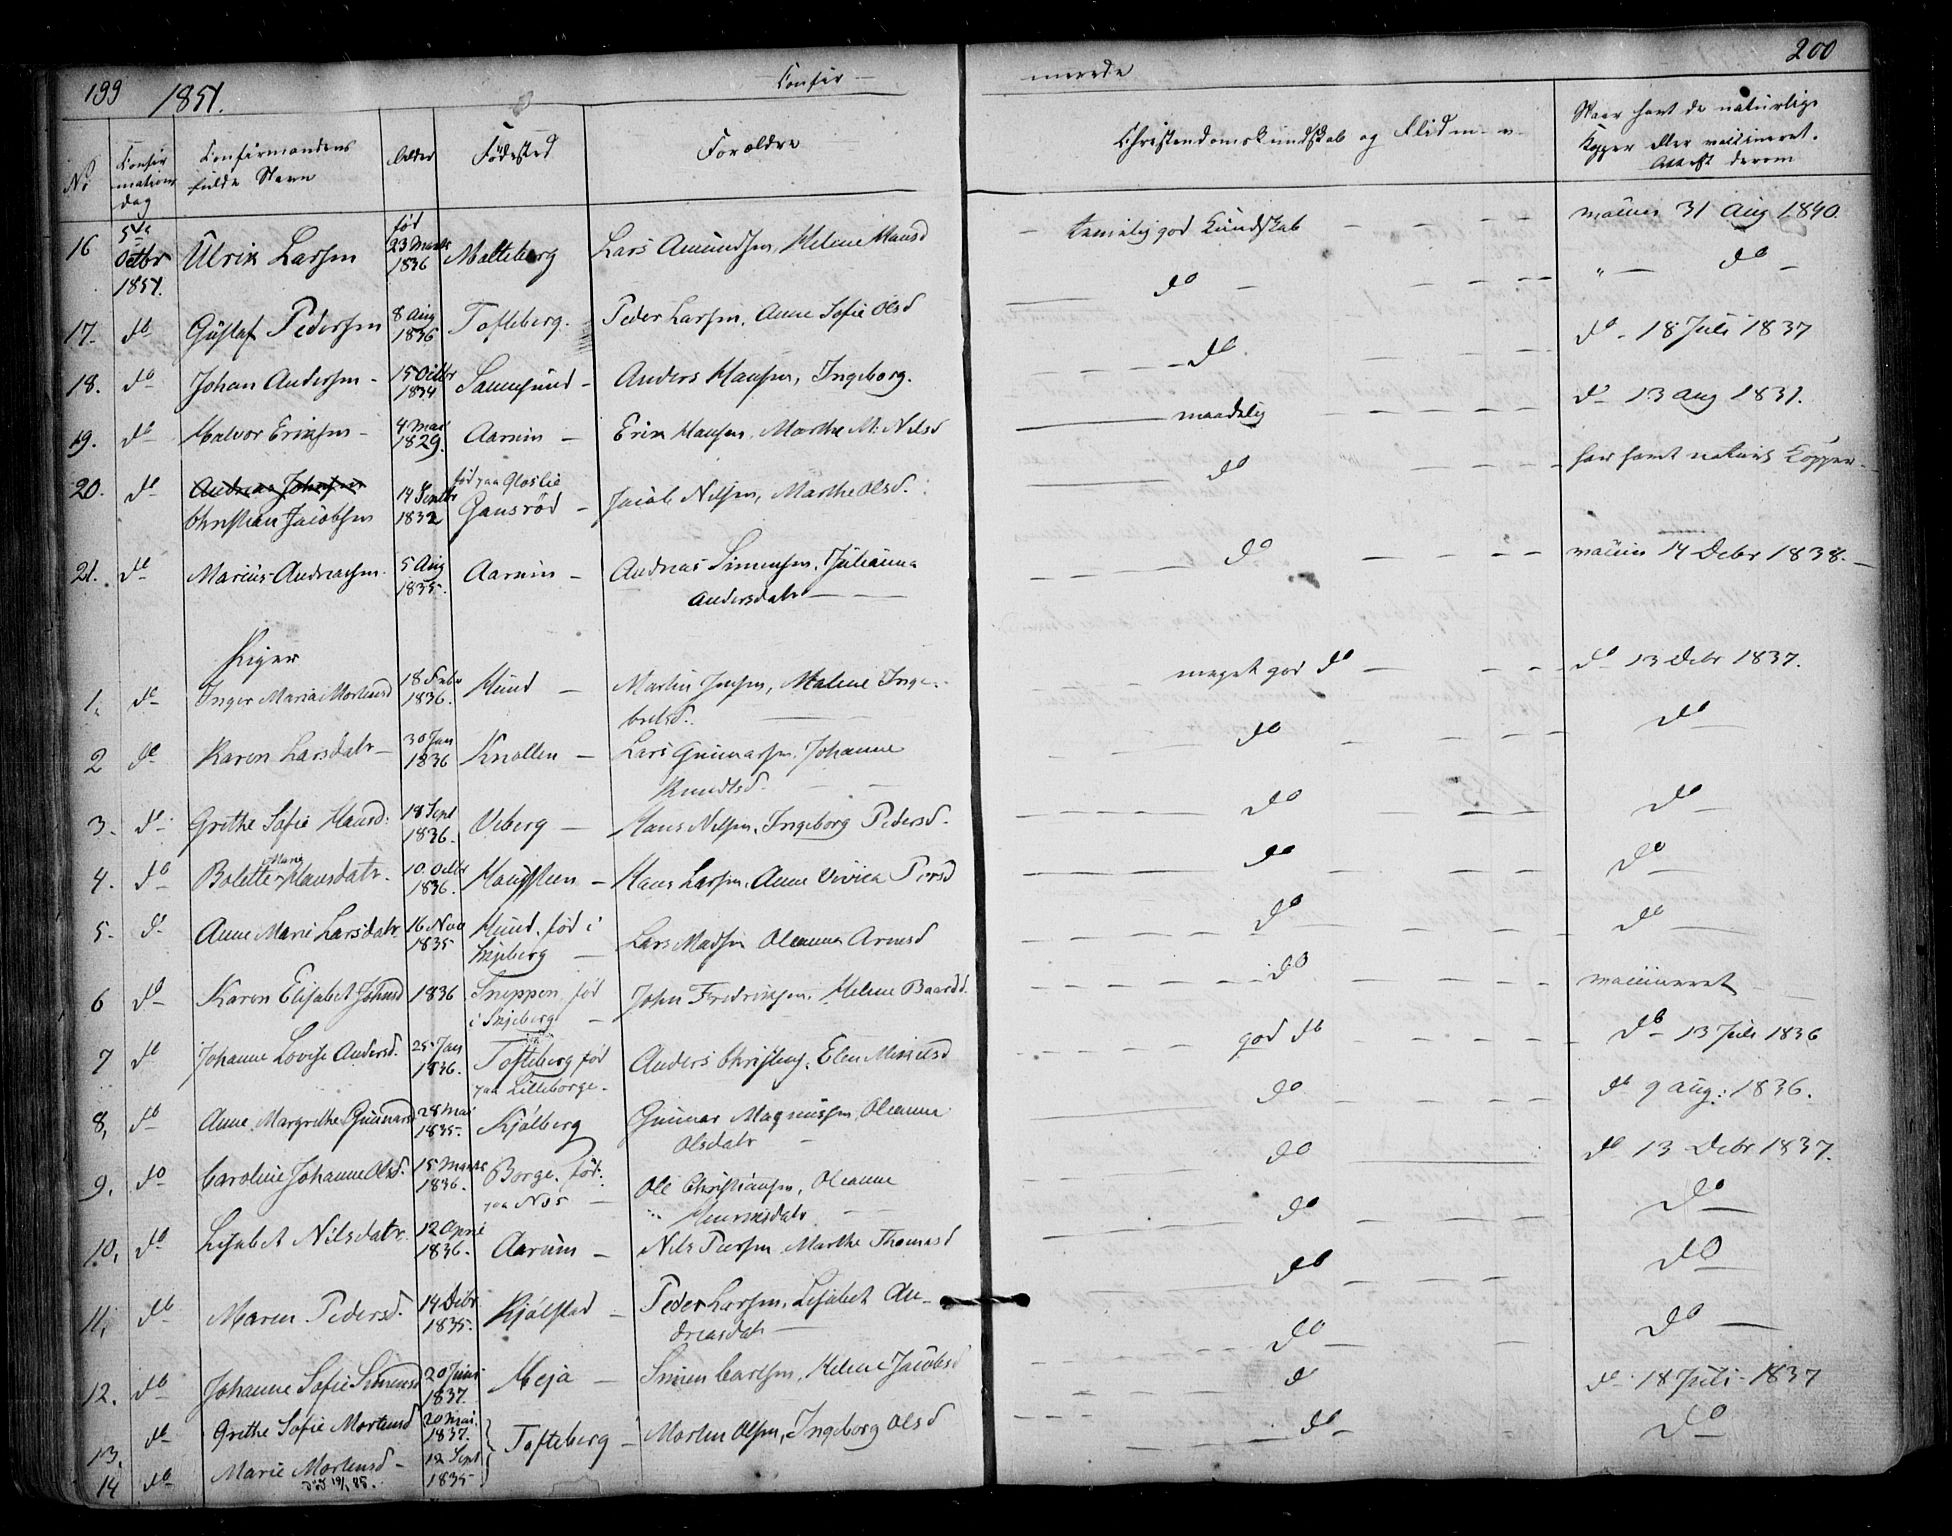 199 1851. Confir-
merede 200
No
Confirmations dag
Confirmandens fulde Navn
Alder
Fødested
Forældre
Christendomskundskab og Flid m. v.
Naar havt de naturlige Kopper eller vaccineret. Attest derom
16 5te Octbr 1851. Ulrik Larsen født 23 Marts 1836 Molteberg Lars Amundsen, Helene Hansd temelig god Kundskab vaccin 31 Aug 1840.
17. do Gustaf Pedersen 8 Aug 1836 Tofteberg. Peder Larsen, Anne Sofie Olsd do " do
18. do Johan Andersen 15 Octbr 1834 Sannesund Anders Hansen, Ingeborg. do do 18 Juli 1837
19. do Halvor Eriksen 4 Mai 1829. Aarum Erik Hansen, Marthe M. Nilsd maadelig do 13 Aug 1831.
20. do Andreas Johnsen
Christian Jacobsen 14 Septbr 1832 fød paa Gloslie Gansrød Jacob Nilsen, Marthe Olsd. do har havt naturl Kopper
21. do Marius Andreasen 5 Aug 1835. Aarum Andreas Simensen, Julianna Andersdatr do vaccin 14 Debr 1838.
Piger
1. do Inger Maria Mortensd 18 Febr 1836. Hund Martin Jensen, Malene Ingebretsd. meget god do do 13 Debr 1837.
2 do Karen Larsdatr 30 Jan 1836 Knatten Lars Gunnarsen, Johanne Knudtsd. do do
3. do Grethe Sofie Hansd. 18 Sept 1836. Veberg Hans Nilsen, Ingeborg Pedersd. do do
4. do Bolette Marie Hansdatr. 10. Octbr 1836. Haugsteen Hans Larsen, Anne Vivica Persd do do
5. do Anne Marie Larsdatr 16 Nov 1835 Hund, fød i Skjeberg Lars Madsen Oleanna Arnesd do do
6 do Karen Elisabet Johnsd 1836 Sneppen, fød i Skjeberg John Fredriksen, Helene Baardsd. do vaccineret
7 do Johanne Lovise Andersd. 25 Jan 1836. Tofteberg fød paa Lilleborge. Anders Christens. Elen Mikelsd god do do 13 Juli 1836
8, do Anne Margrethe Gunnarsd 28 Mai 1835. Kjølberg Gunnar Magnussen, Oleanne Olsdatr do do 9 Aug: 1836.
9. do Caroline Johanne Olsd. 15 Marts 1836. Borge, fød paa Nøs Ole Christiansen, Oleanne Henriksdatr do do 13 Debr 1837.
10, do Lisabet Nilsdatr. 12 April 1836. Aarum Nils Persen Marthe Thomasd do do
11, do Maren Pedersd. 14 Debr 1835. Kjølstad Peder Larsen, Lisabet Andreasdatr do do
12. do Johanne Sofie Simensd 20 Juni 1837. Meja Simen Carlsen, Helene Jacobsd do do
13. do Grethe Sofie Mortensd 20 Mai. 1837. Tofteberg Morten Olsen, Ingeborg Olsd d do 18 Juli 1837
14 do Marie Mortensd død 19/1 85. 12 Sept 1835 do do